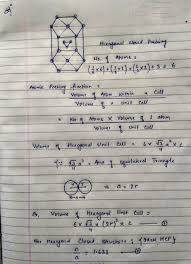 Hexagonal Closed Packing
No. of Atoms =
(1/6 × 6) + (1/6 × 6) + (1/2 × 2) + 3 = 6
Atomic Packing fraction =
Volume of Atom within a Cell
Volume of Unit Cell
= No. of Atoms × Volume of 1 atom
Volume of Unit Cell
Volume of Hexagonal Unit Cell = 6 × √3/4 a² × c
{∵ √3/4 a² = Area of Equilateral Triangle}
a = 2r
So, Volume of Hexagonal Unit Cell =
6 × √3/4 (2r)² × c
For Hexagonal Closed Structure
c/a = 1.633